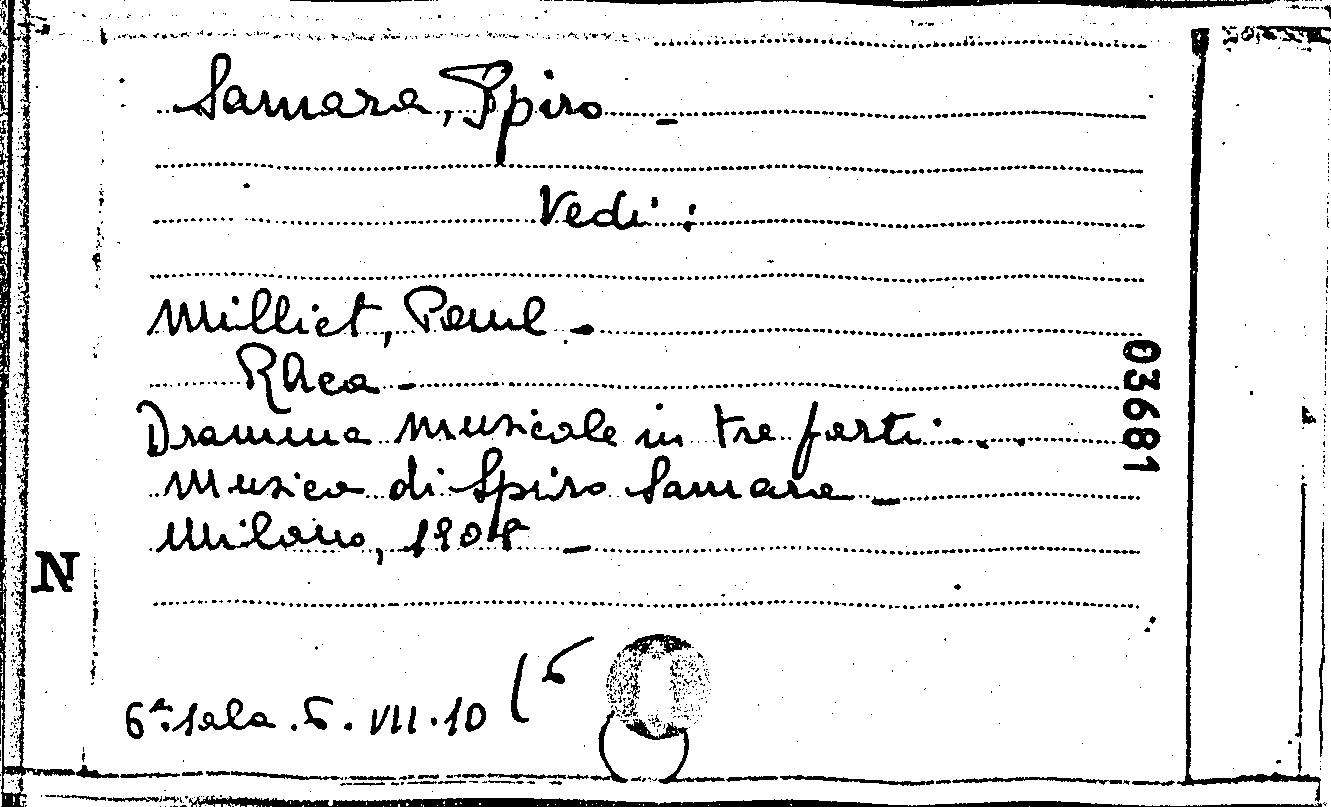 Samara, Spiro -
Vedi:
Milliet, Paul -
Rhea -
Dramma musicale in tre parti...
Musica di Spiro Samara -
Milano, 1908 -
03681
N
6ª sala. 5. VII. 10 (5